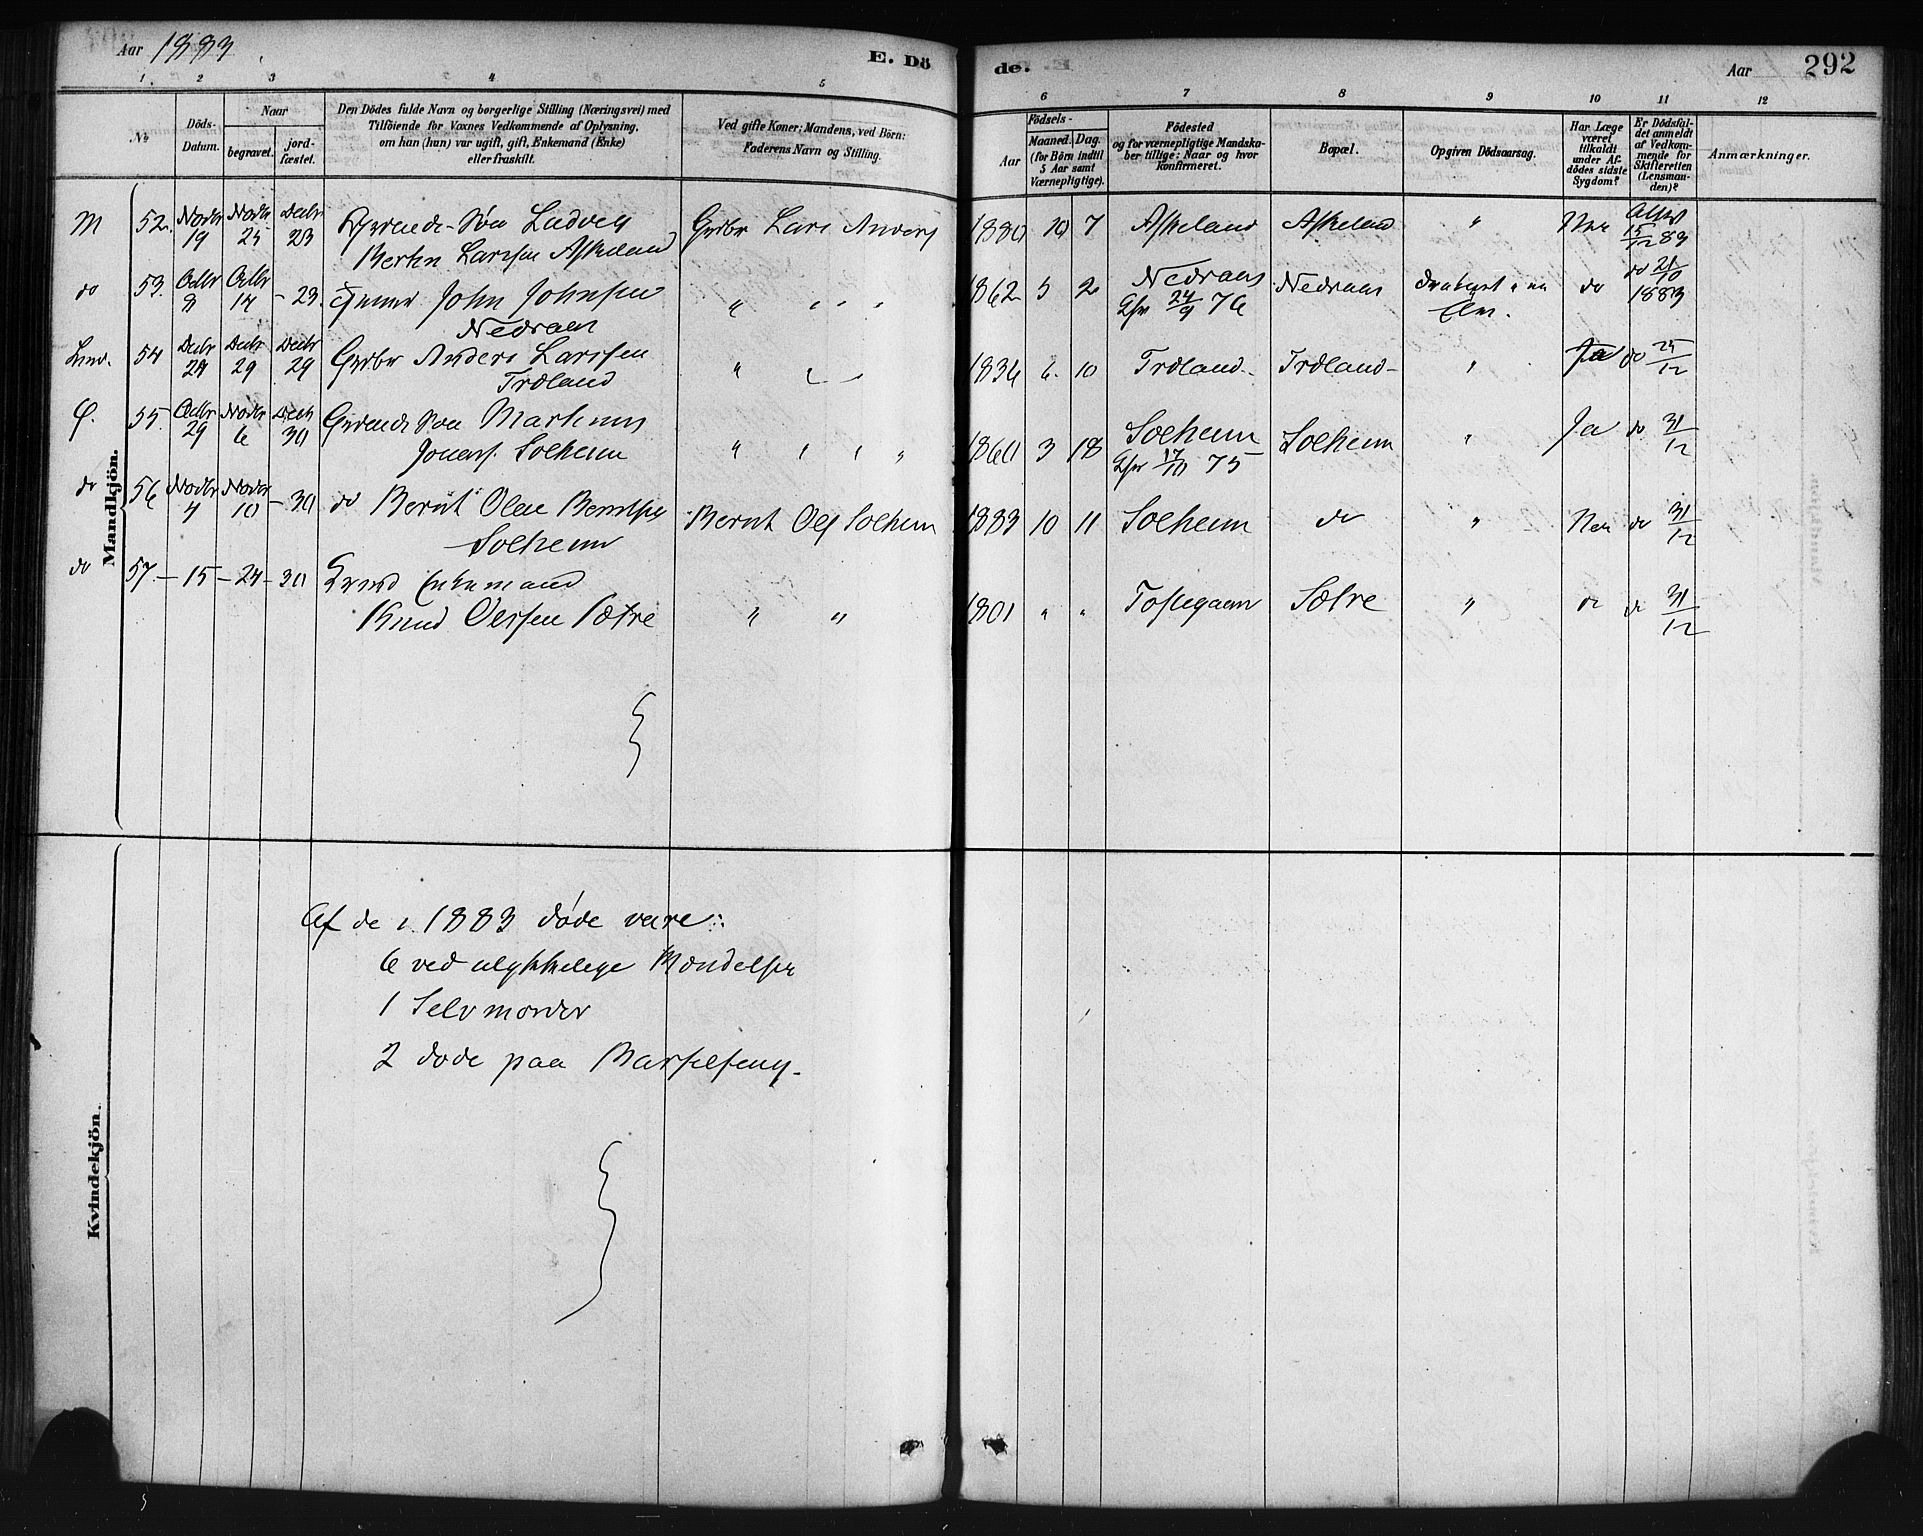 Aar 1883
E. Dö
de.
Aar
292
1. 2 3 4 5
6 7 8 9 10 11 12
No
Döds-Datum.
Naar
begravet.
jord-fæstet.
Den Dödes fulde Navn og borgerlige Stilling (Næringsvei) med
Tilföiende for Voxnes Vedkommende af Oplysning,
om han (hun) var ugift, gift, Enkemand (Enke)
eller fraskilt.
Ved gifte Koner: Mandens, ved Börn:
Faderens Navn og Stilling.
Födsels-
Aar
Maaned. Dag.
(for Börn indtil
5 Aar samt
Værnepligtige).
Födested
og for værnepligtige Mandska-
ber tillige: Naar og hvor
Konfirmeret.
Bopæl.
Opgiven Dödsaarsag.
Har Læge
været
tilkaldt
under Af-
dödes sidste
Sygdom?
Er Dödsfal-
det anmeldt
af Vedkom-
mende for
Skifteretten
(Lensman-
den)?
Anmærkninger.
Mandkjön.
M 52. Novbr 19 Novbr 25 Decbr 23 Søn Ludvig Grdbr Lars Anders 1880 10 7 Askeland Askeland " Nei 15/12 83
Berten Larssen Askeland
do 53. Octbr 8 Octbr 17 - 23 John Johnsen " " " " 1862 5 2 Nedraas Nedraas Druknet i en do do 21/10
Nedraas 24/9 76 Elv. 1883
54 Decbr 24 Decbr 29 Decbr 29 Grdbr Anders Larssen " 1836 6 10 Trdland Trdland " Ja do 25/12
Trdland
55. Octbr 29 Novbr 6 Decbr 30 Søn Markus " " " " 1860 3 18 Solheim Solheim " Ja do 31/12
Jonas. Solheim 17/10 75
do 56 Novbr 4 Novbr 10 - 30 do Bernt Olai Berntsen Bernt Ols Solheim 1883 10 11 Solheim do " Nei do 31/12
Solheim
do 57 - 15 - 24 - 30 Enkemand
Knud Olssen Sætre " " 1801 " " Sætre " do do 31/12
Kvindekjön.
Af de i 1883 døde vare:
6 ved ulykkelige Hændelser
1 Selvmorder
2 døde paa Barselseng.